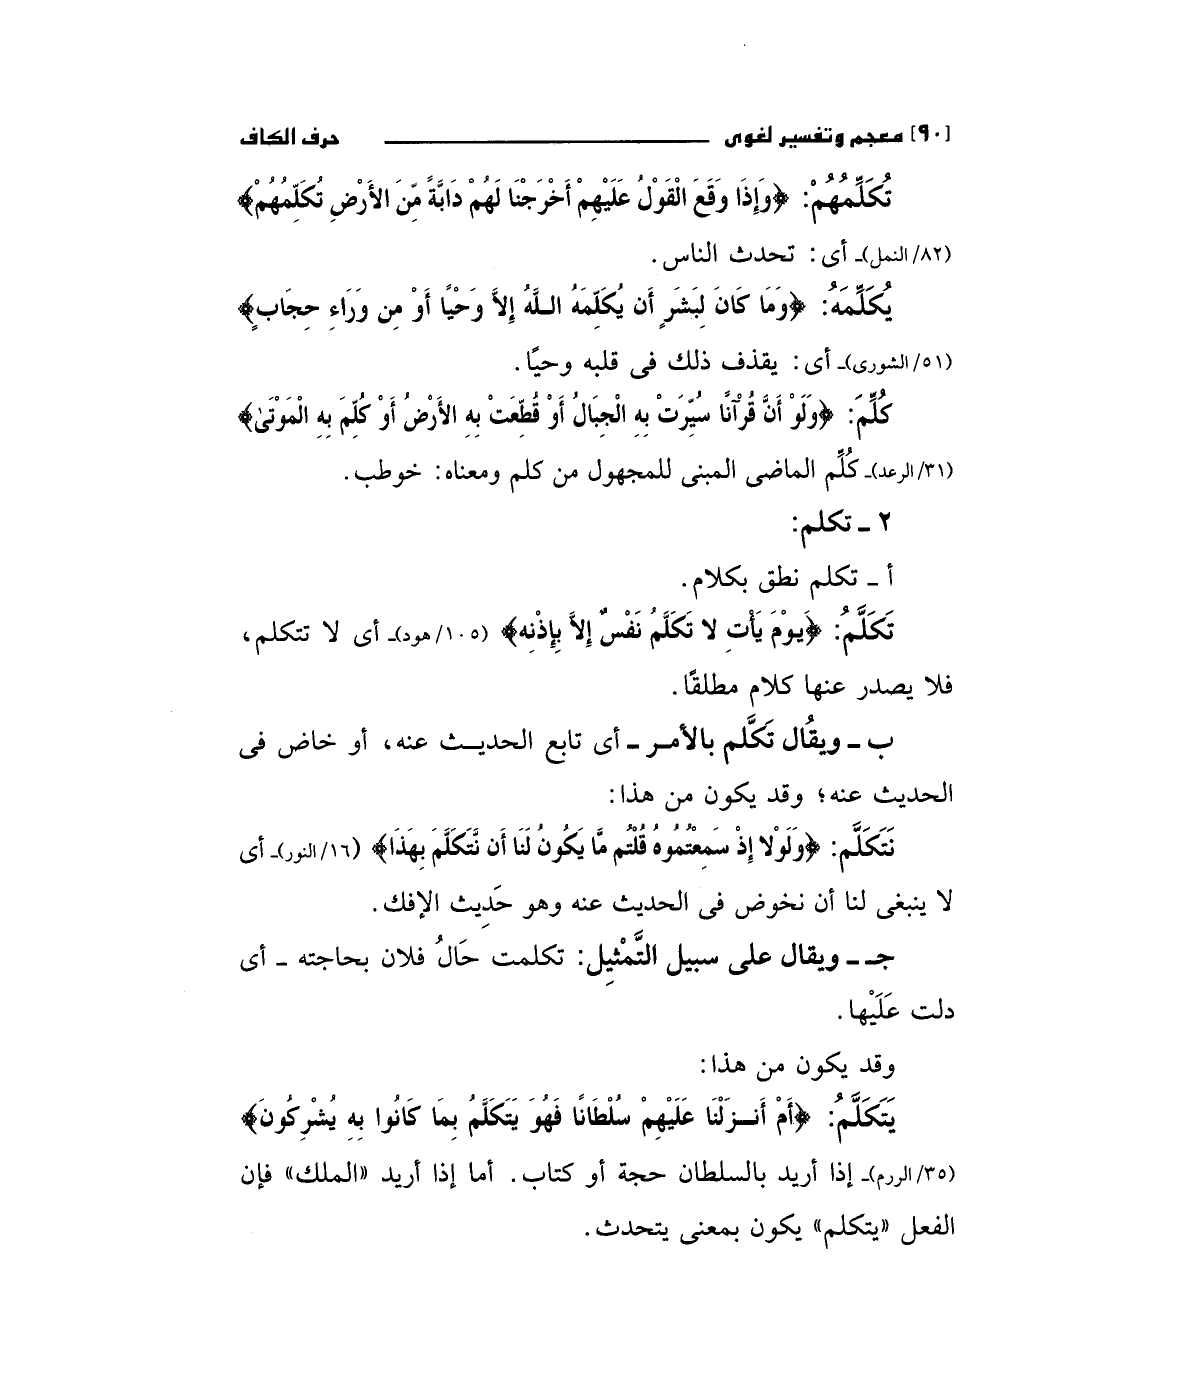 [٩٠] معجم وتفسير لغوى ــــــــــــ حرف الكاف
تُكَلِّمُهُمْ: ﴿وَإِذَا وَقَعَ الْقَوْلُ عَلَيْهِمْ أَخْرَجْنَا لَهُمْ دَابَّةً مِّنَ الأَرْضِ تُكَلِّمُهُمْ﴾
(٨٢/ النمل)ـ أى: تحدث الناس.
يُكَلِّمَهُ: ﴿وَمَا كَانَ لِبَشَرٍ أَن يُكَلِّمَهُ اللَّهُ إِلاَّ وَحْيًا أَوْ مِن وَرَاءِ حِجَابٍ﴾
(٥١/ الشورى)ـ أى: يقذف ذلك فى قلبه وحيًا.
كُلِّمَ: ﴿وَلَوْ أَنَّ قُرْآنًا سُيِّرَتْ بِهِ الْجِبَالُ أَوْ قُطِّعَتْ بِهِ الأَرْضُ أَوْ كُلِّمَ بِهِ الْمَوْتَىٰ﴾
(٣١/ الرعد)ـ كُلِّم الماضى المبنى للمجهول من كلم ومعناه: خوطب.
٢ ـ تكلم:
أ ـ تكلم نطق بكلام.
تَكَلَّمُ: ﴿يَوْمَ يَأْتِ لا تَكَلَّمُ نَفْسٌ إِلاَّ بِإِذْنِهِ﴾ (١٠٥/ هود)ـ أى لا تتكلم،
فلا يصدر عنها كلام مطلقًا.
ب ـ ويقُال تَكَّلم بالأمـر ـ أى تابع الحديـث عنه، أو خاض فى
الحديث عنه؛ وقد يكون من هذا:
نَتَكَلَّم: ﴿وَلَوْلا إِذْ سَمِعْتُمُوهُ قُلْتُم مَّا يَكُونُ لَنَا أَن نَّتَكَلَّمَ بِهَذَا﴾ (١٦/ النور)ـ أى
لا ينبغى لنا أن نخوض فى الحديث عنه وهو حَدِيث الإفك.
جـ ـ ويقال على سبيل التَّمْثِيل: تكلمت حَالُ فلان بحاجته ـ أى
دلت عَلَيْها.
وقد يكون من هذا:
يَتَكَلَّمُ: ﴿أَمْ أَنـزَلْنَا عَلَيْهِمْ سُلْطَانًا فَهُوَ يَتَكَلَّمُ بِمَا كَانُوا بِهِ يُشْرِكُونَ﴾
(٣٥/ الررم)ـ إذا أريد بالسلطان حجة أو كتاب. أما إذا أريد «الملك» فإن
الفعل «يتكلم» يكون بمعنى يتحدث.